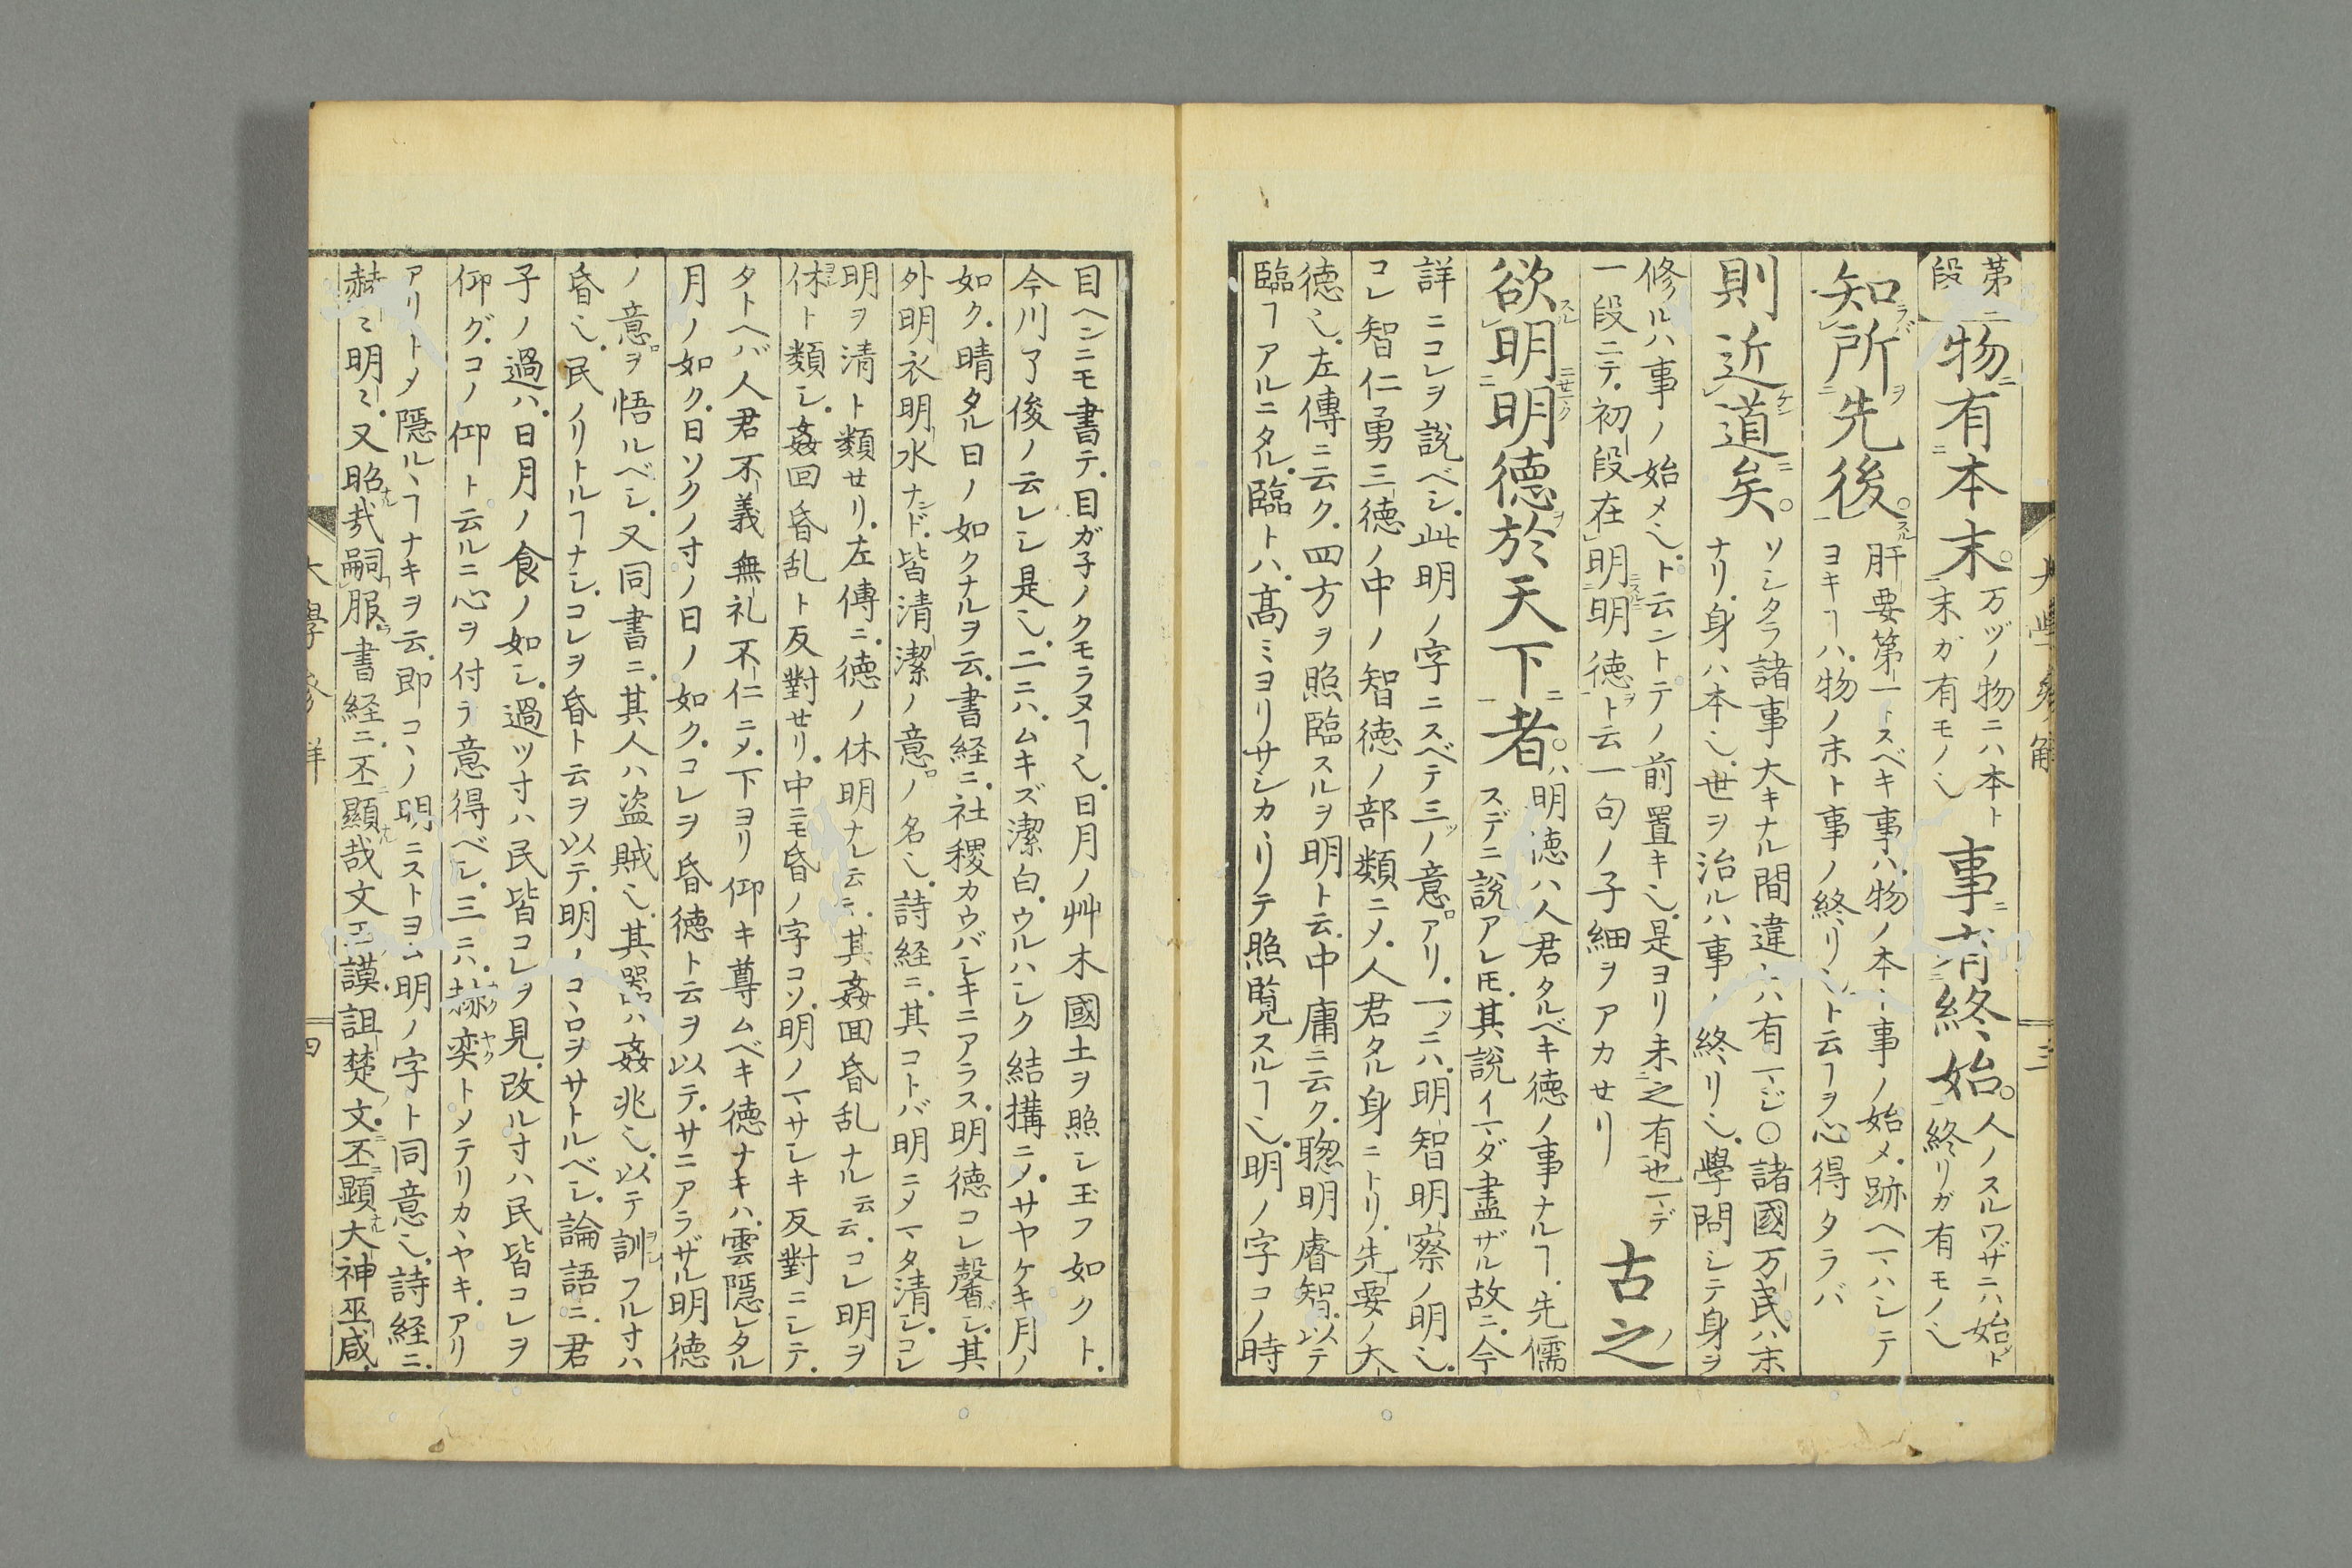 第二段
物有本末。
万ヅノ物ニハ本ト
末ガ有モノ乄
事有終始。
人ノスルワザニハ始ト
終リガ有モノ乄
知所先後。
肝要第一トスベキ事ハ、物ノ本ト事ノ始メ、跡ヘマハシテ
ヨキヿハ、物ノ末ト事ノ終リ乄ト云ヿヲ心得タラバ
則近道矣。
ソシタラ諸事大キナル間違ハ有マジ〇諸國万民ハ末
ナリ、身ハ本乄、世ヲ治ルハ事ノ終リ乄、學問シテ身ヲ
修ルハ事ノ始メ乄ト云ントテノ前置キ乄、是ヨリ未之有也マデ
一段ニテ、初段在明明德ト云一句ノ子細ヲアカセリ
古之
欲明明德於天下者。
明德ハ人君タルベキ德ノ事ナルヿ、先儒
スデニ說アレ𪜈、其說イマダ盡ザル故ニ、今
詳ニコレヲ說ベシ、此明ノ字ニスベテ三ツノ意アリ、一ツニハ、明智明察ノ明乄、
コレ智仁勇三德ノ中ノ智德ノ部類ニ〆、人君タル身ニトリ、先要ノ大
德乄、左傳ニ云ク、四方ヲ照臨スルヲ明ト云、中庸ニ云ク、聰明睿智、以テ
臨ヿアルニタル、臨トハ、高ミヨリサシカヽリテ照覽スルヿ乄、明ノ字コノ時
目ヘンニモ書テ、目ガ子ノクモラヌヿ乄、日月ノ艸木國土ヲ照シ玉フ如クト、
今川了俊ノ云レシ是乄、二ニハ、ムキズ潔白、ウルハシク結搆ニ〆、サヤケキ月ノ
如ク、晴タル日ノ如クナルヲ云、書経ニ、社稷カウバシキニアラス、明德コレ馨シ、其
外明衣明水ナンド、皆清潔ノ意ノ名乄、詩経ニ、其コトバ明ニ〆マタ清シ、コレ
明ヲ清ト類セリ、左傳ニ、德ノ休明ナレ云云、其姦回昏乱ナル云云、コレ明ヲ
休ト類シ、姦回昏乱ト反對セリ、中ニモ昏ノ字コソ、明ノマサシキ反對ニシテ、
タトヘバ人君不義無礼不仁ニ〆、下ヨリ仰キ尊ムベキ德ナキハ、雲隱レタル
月ノ如ク、日ソクノ寸ノ日ノ如ク、コレヲ昏德ト云ヲ以テ、サニアラザル明德
ノ意ヲ悟ルベシ、又同書ニ、其人ハ盜賊乄、其器ハ姦兆乄、以テ訓フル寸ハ
昏乄、民ノリトルヿナシ、コレヲ昏ト云ヲ以テ、明ノコヽロヲサトルベシ、論語ニ、君
子ノ過ハ、日月ノ食ノ如シ、過ツ寸ハ民皆コレヲ見、改ル寸ハ民皆コレヲ
仰グ、コノ仰ト云ルニ心ヲ付ラ意得ベシ、三ニハ、赫奕ト〆テリカヽヤキ、アリ
アリト〆隱ルヽヿナキヲ云、即コヽノ明ニストヨム明ノ字ト同意乄、詩経ニ、
赫ミ明ミ、又昭哉嗣服、書経ニ、丕顯哉文王謨、詛楚文、丕顕大神巫咸、